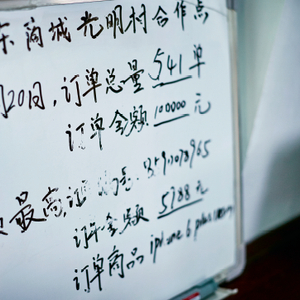 东商城光明村合作点
月20日,订单总量541单
订单金额100000元
最高订
订单金额5788元
订单商品iphone 6 plus